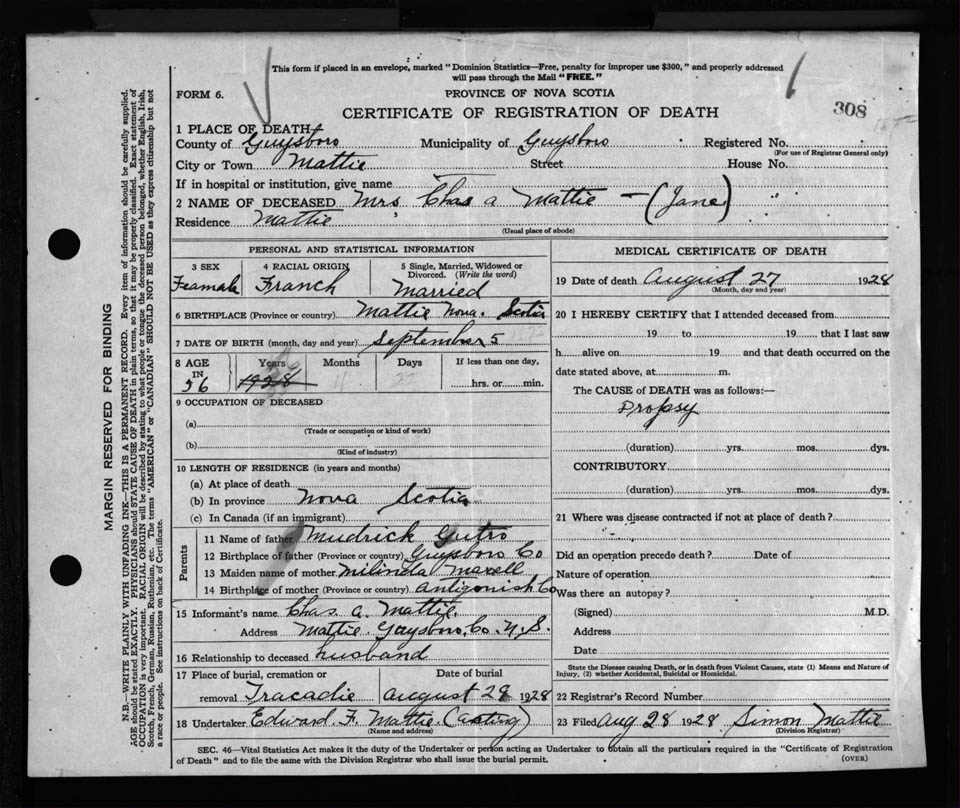 This form if placed in an envelope, marked "Dominion Statistics—Free, penalty for improper use $300," and properly addressed
will pass through the Mail "FREE."
FORM 6.
PROVINCE OF NOVA SCOTIA
308
CERTIFICATE OF REGISTRATION OF DEATH
1 PLACE OF DEATH—
County of Guysboro Municipality of Guysboro Registered No.
(For use of Registrar General only)
City or Town Mattie Street House No.
If in hospital or institution, give name
2 NAME OF DECEASED Mrs Chas a Mattie — (Jane)
Residence Mattie
(Usual place of abode)
PERSONAL AND STATISTICAL INFORMATION
3 SEX
Feamale
4 RACIAL ORIGIN
Franch
5 Single, Married, Widowed or
Divorced. (Write the word)
Married
6 BIRTHPLACE (Province or country) Mattie Nova. Scotia
7 DATE OF BIRTH (month, day and year) September 5
8 AGE
IN
56
Years
1928
Months
11
Days
22
If less than one day,
hrs. or min.
9 OCCUPATION OF DECEASED
(a)
(Trade or occupation or kind of work)
(b)
(Kind of industry)
10 LENGTH OF RESIDENCE (in years and months)
(a) At place of death
(b) In province Nova Scotia
(c) In Canada (if an immigrant)
Parents
11 Name of father Mudrick Gutro
12 Birthplace of father (Province or country) Guysboro Co
13 Maiden name of mother Milinda Maxell
14 Birthplace of mother (Province or country) Antigonish Co
15 Informant's name Chas. a. Mattie.
Address Mattie. Gaysboro. Co. N. S.
16 Relationship to deceased husband
17 Place of burial, cremation or
removal Tracadie
Date of burial
august 29 1928
18 Undertaker Edward. F. Mattie. (acting)
(Name and address)
MEDICAL CERTIFICATE OF DEATH
19 Date of death August 27 1928
(Month, day and year)
20 I HEREBY CERTIFY that I attended deceased from
19 to 19 that I last saw
h alive on 19 and that death occurred on the
date stated above, at m.
The CAUSE of DEATH was as follows:—
Dropsy
(duration) yrs. mos. dys.
CONTRIBUTORY
(duration) yrs. mos. dys.
21 Where was disease contracted if not at place of death?
Did an operation precede death? Date of
Nature of operation
Was there an autopsy?
(Signed) M.D.
Address
Date
State the Disease causing Death, or in death from Violent Causes, state (1) Means and Nature of
Injury, (2) whether Accidental, Suicidal or Homicidal.
22 Registrar's Record Number
23 Files Aug 28 1928 Simon Mattie
(Division Registrar)
SEC. 46—Vital Statistics Act makes it the duty of the Undertaker or person acting as Undertaker to obtain all the particulars required in the "Certificate of Registration
of Death" and to file the same with the Division Registrar who shall issue the burial permit.
(OVER)
MARGIN RESERVED FOR BINDING
N.B.—WRITE PLAINLY WITH UNFADING INK—THIS IS A PERMANENT RECORD. Every item of information should be carefully supplied.
AGE should be stated EXACTLY. PHYSICIANS should STATE CAUSE OF DEATH in plain terms, so that it may be properly classified. Exact statement of
OCCUPATION is very important. RACIAL ORIGIN will be described by stating to what people or tongue the deceased person belonged, whether English, Irish,
Scotch, French, German, Russian, Ruthenian, etc. The terms "AMERICAN" or "CANADIAN" SHOULD NOT BE USED as they express citizenship but not
a race or people. See instructions on back of Certificate.